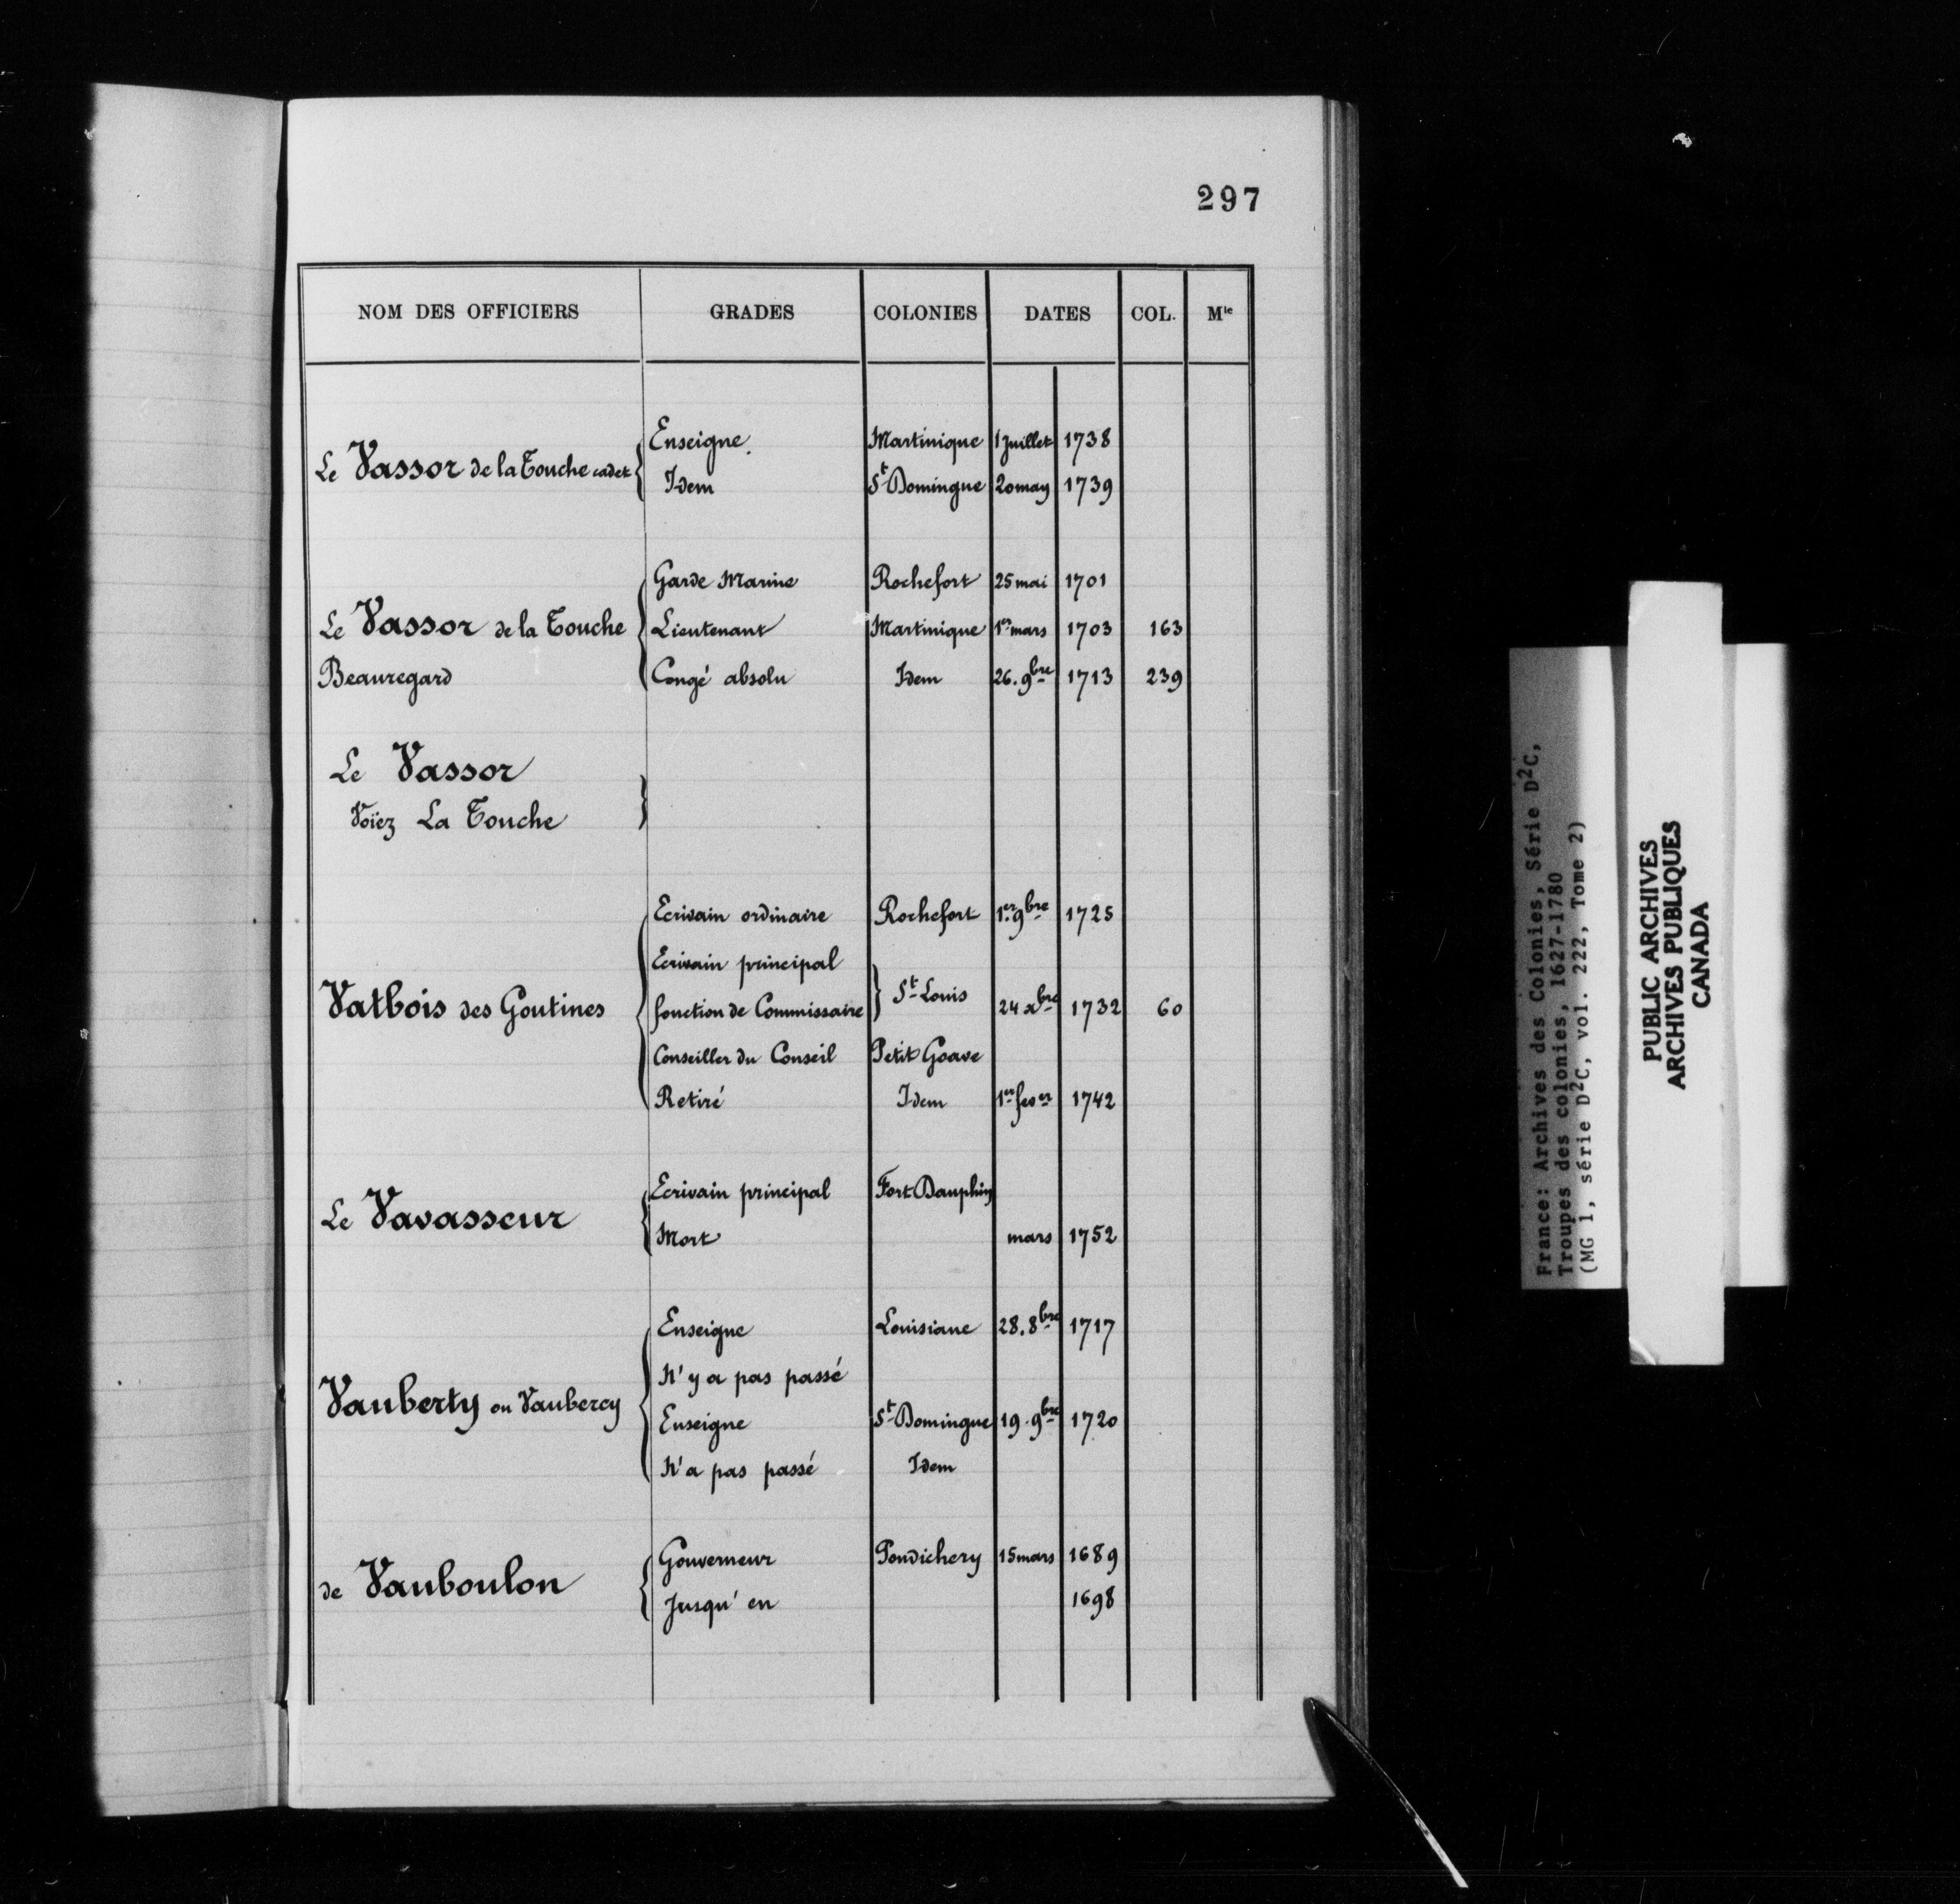 297
NOM DES OFFICIERS GRADES COLONIES DATES COL. Mle
Enseigne Martinique 1 Juillet 1738
Le Vassor de la Touche cadet
Idem St Domingue 20 may 1739
Garde Marine Rochefort 25 mai 1701
Le Vassor de la Touche Lieutenant Martinique 1er mars 1703 163
Beauregard Congé absolu Idem 26. 9bre 1713 239
Le Vassor
Voïez La Touche
Ecrivain ordinaire Rochefort 1er. 9bre 1725
Ecrivain principal
St Louis
Vatbois des Goutines fonction de Commissaire 24 xbre 1732 60
Conseiller du Conseil Petit Goave
Retiré Idem 1er fever 1742
Ecrivain principal Fort Dauphin
Le Vavasseur
Mort mars 1752
Enseigne Louisiane 28. 8bre 1717
N'y a pas passé
Vauberty ou Vaubercy
Enseigne St Domingue 19. 9bre 1720
N'a pas passé Idem
Gouverneur Pondichery 15 mars 1689
de Vauboulon
Jusqu'en 1698
France: Archives des Colonies, Série D2C,
Troupes des colonies, 1627-1780
(MG 1, série D2C, vol. 222, Tome 2)
PUBLIC ARCHIVES
ARCHIVES PUBLIQUES
CANADA